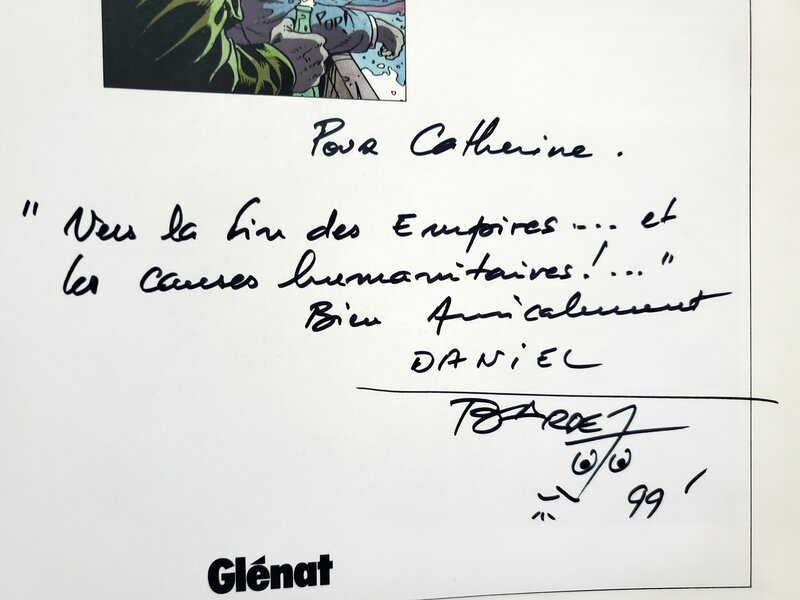 POP!
Pour Catherine.
" Vers la fin des Empires.... et
les causes humanitaires!..."
Bien Amicalement
DANIEL
BARDET
99'
Glénat